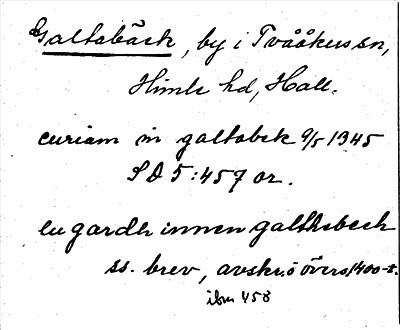 Galtabäck, by i Tvååkers sn,
Himle hd, Hall.
curiam in galtabek 9/5 1345
SD 5:457 or.
en gardh innen galthebech
ss. brev, avskr. o övers 1400-t.
ibm 458